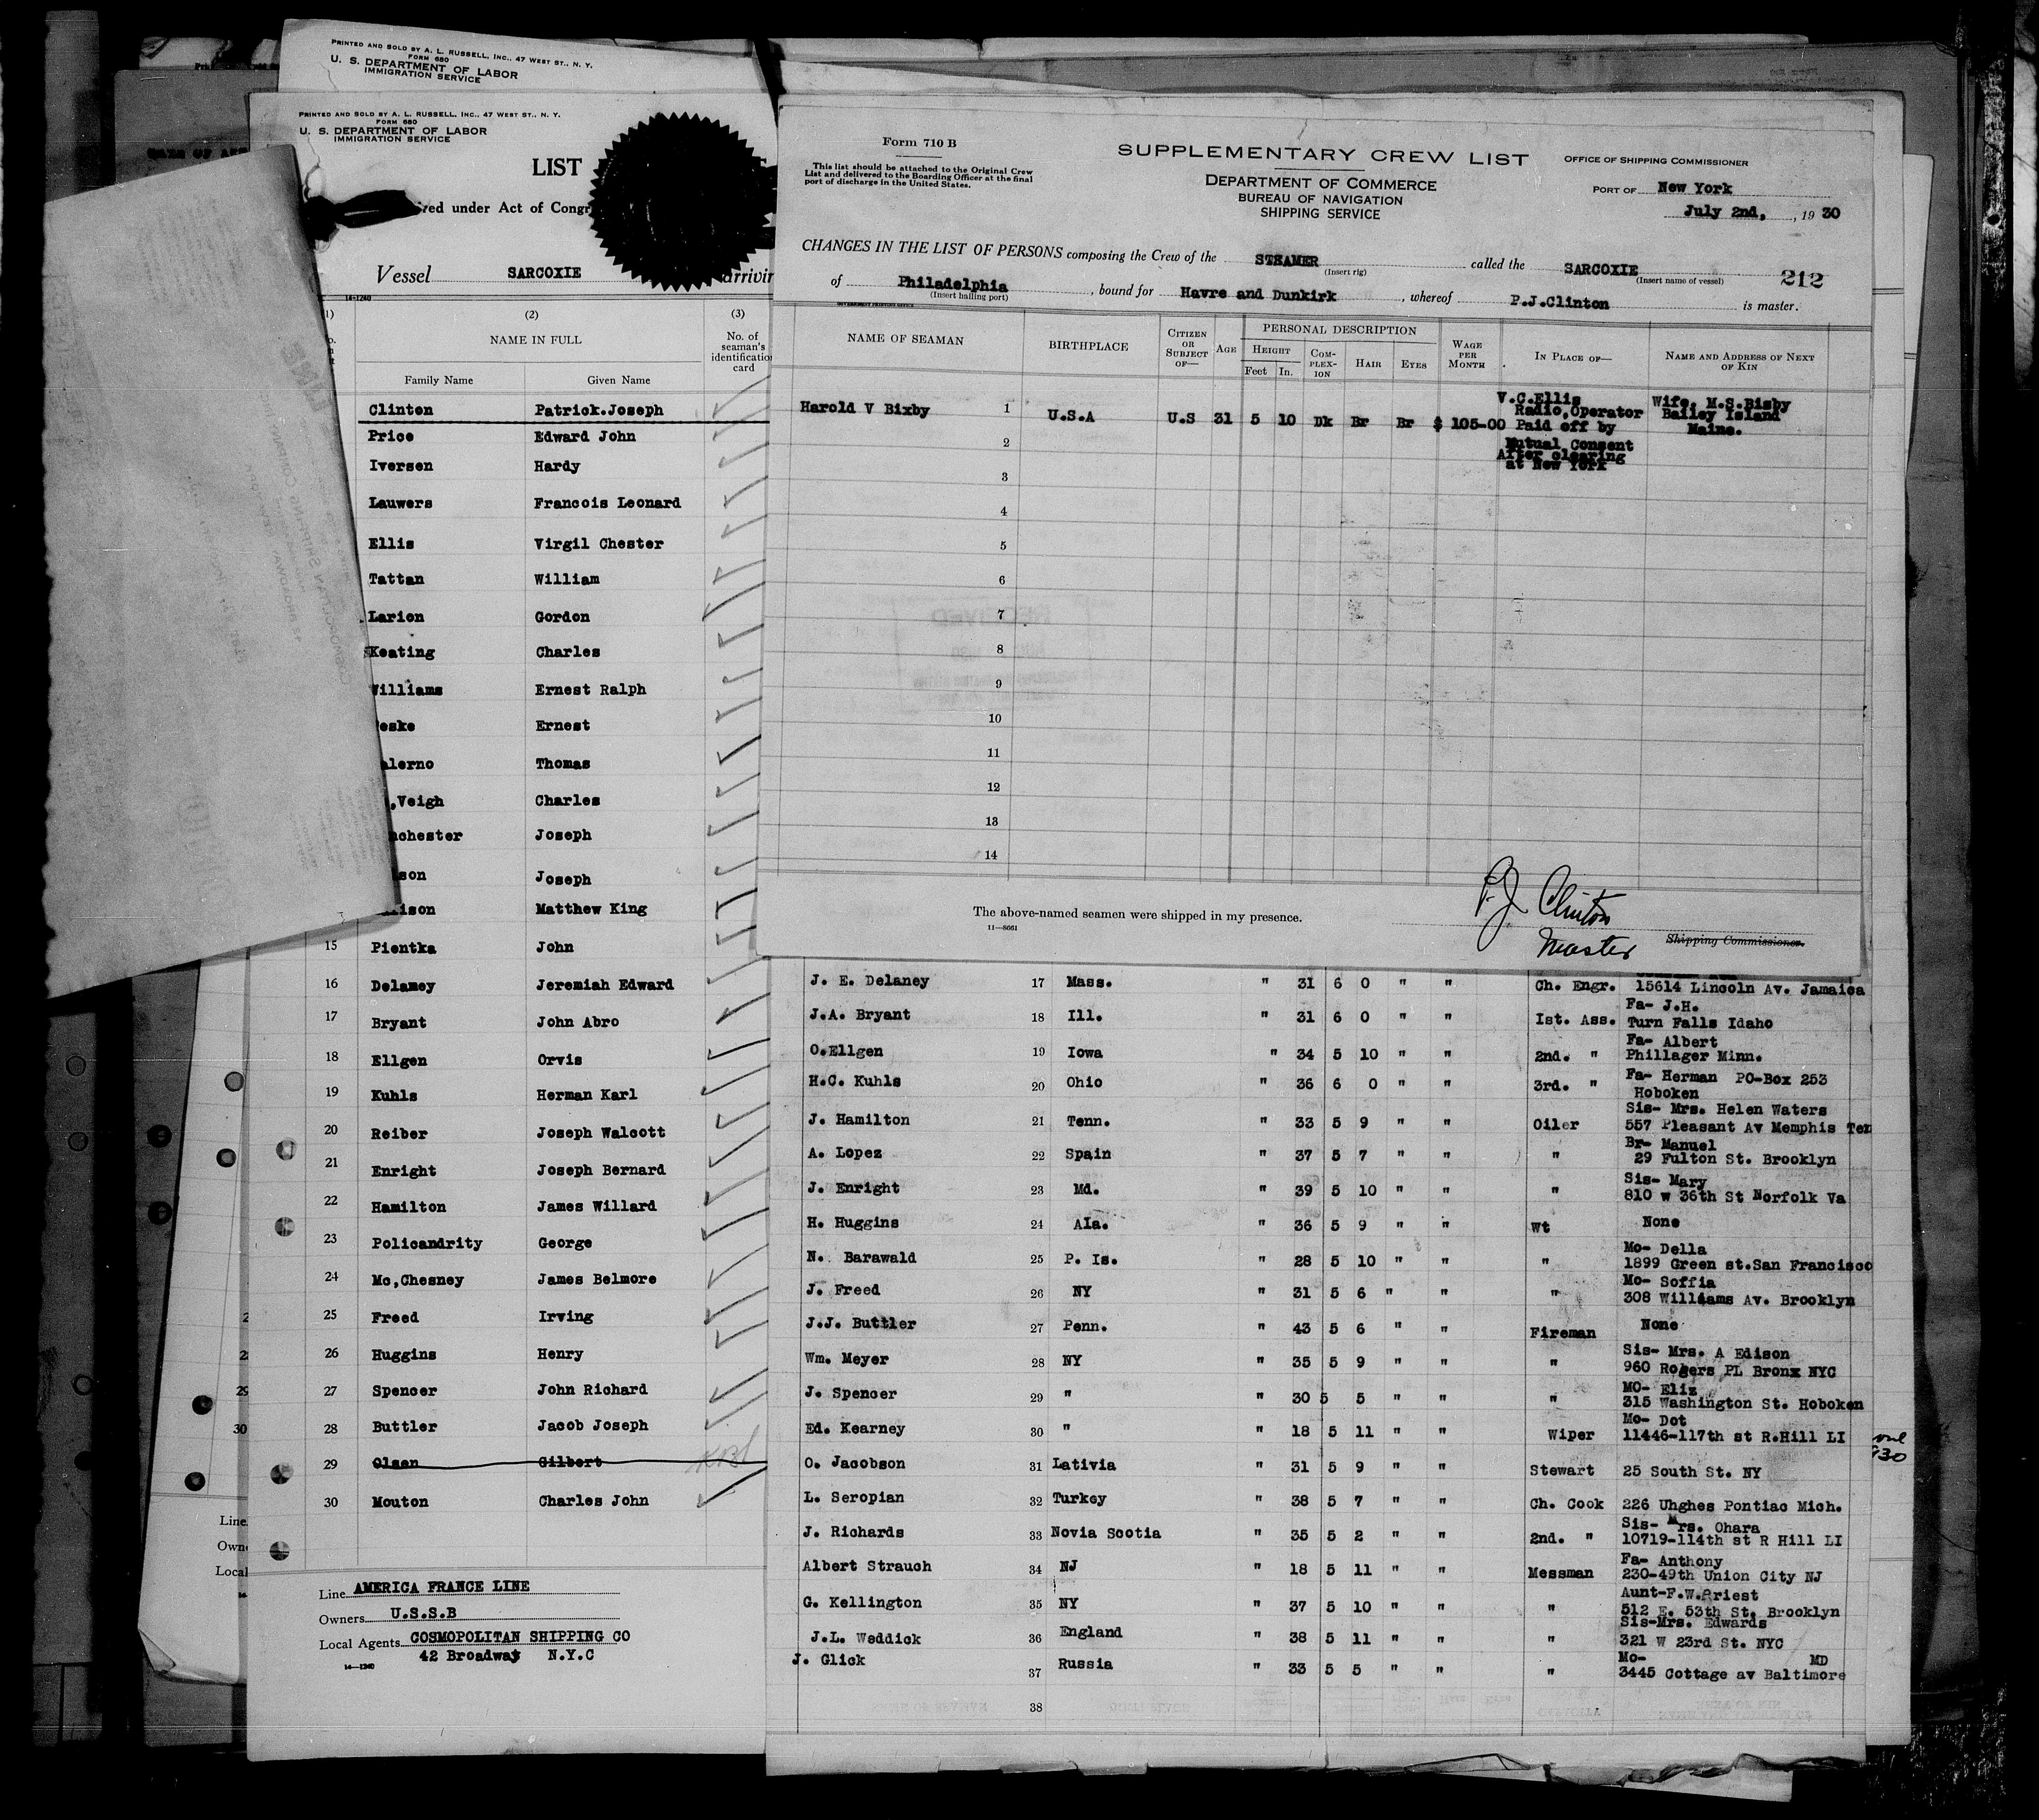 PRINTED AND SOLD BY A. L. RUSSELL, INC., 47 WEST ST., N. Y.
FORM 680
U. S. DEPARTMENT OF LABOR
IMMIGRATION SERVICE
PRINTED AND SOLD BY A. L. RUSSELL, INC., 47 WEST ST., N. Y.
FORM 680
U. S. DEPARTMENT OF LABOR
IMMIGRATION SERVICE
LIST
under Act of
Vessel SARCOXIE
14-1240
(2) (3)
NAME IN FULL
No. of seaman's identification card
Family Name Given Name
Clinton Patrick.Joseph
Price Edward John
Iversen Hardy
Lauwers Francois Leonard
Ellis Virgil Chester
Tattan William
Larien Gordon
Keating Charles
Williams Ernest Ralph
Ernest
Thomas
Veigh Charles
Joseph
Joseph
Matthew King
15 Pientka John
16 Delaney Jeremiah Edward
17 Bryant John Abro
18 Ellgen Orvis
19 Kuhls Herman Karl
20 Reiber Joseph Walcott
21 Enright Joseph Bernard
22 Hamilton James Willard
23 Policandrity George
24 Mc,Chesney James Belmore
25 Freed Irving
26 Huggins Henry
27 Spencer John Richard
28 Buttler Jacob Joseph
29 Olsen Gilbert
30 Mouton Charles John
Line AMERICA FRANCE LINE
Owners U.S.S.B
Local Agents COSMOPOLITAN SHIPPING CO
42 Broadway N.Y.C
14-1240
Form 710 B
This list should be attached to the Original Crew
List and delivered to the Boarding Officer at the final
port of discharge in the United States.
SUPPLEMENTARY CREW LIST
DEPARTMENT OF COMMERCE
BUREAU OF NAVIGATION
SHIPPING SERVICE
OFFICE OF SHIPPING COMMISSIONER
PORT OF New York
July 2nd, , 19 30
CHANGES IN THE LIST OF PERSONS composing the Crew of the STEAMER called the SARCOXIE 212
(Insert rig) (Insert name of vessel)
of Philadelphia , bound for Havre and Dunkirk , whereof P.J.Clinton is master.
(Insert hailing port)
GOVERNMENT PRINTING OFFICE
NAME OF SEAMAN BIRTHPLACE CITIZEN OR SUBJECT OF— AGE PERSONAL DESCRIPTION WAGE PER MONTH IN PLACE OF— NAME AND ADDRESS OF NEXT OF KIN
HEIGHT COM-PLEX-ION HAIR EYES
Feet In.
Harold V Bixby 1 U.S.A U.S 31 5 10 Dk Br Br $ 105-00
V.C.Ellis
Radio,Operator
Paid off by
Mutual Consent
After clearing
at New York
Wife, M.S.Bisby
Bailey Island
Maine.
2
3
4
5
6
7
8
9
10
11
12
13
14
The above-named seamen were shipped in my presence.
11—8661
P.J. Clinton
Master Shipping Commissioner.
J. E. Delaney 17 Mass. " 31 6 0 " " Ch. Engr. 15614 Lincoln Av. Jamaica
J.A. Bryant 18 Ill. " 31 6 0 " " Ist. Ass. Fa- J.H.
Turn Falls Idaho
O.Ellgen 19 Iowa " 34 5 10 " " 2nd. " Fa- Albert
Phillager Minn.
H.C. Kuhls 20 Ohio " 36 6 0 " " 3rd. " Fa- Herman PO-Box 253
Hoboken
J. Hamilton 21 Tenn. " 33 5 9 " " Oiler Sis- Mrs. Helen Waters
557 Pleasant Av Memphis Ten
A. Lopez 22 Spain " 37 5 7 " " " Br- Manuel
29 Fulton St. Brooklyn
J. Enright 23 Md. " 39 5 10 " " " Sis- Mary
810 w 36th St Norfolk Va
H. Huggins 24 Ala. " 36 5 9 " " Wt None
N. Barawald 25 P. Is. " 28 5 10 " " " Mo- Della
1899 Green st.San Francisco
J. Freed 26 NY " 31 5 6 " " " Mo- Soffia
308 Williams Av. Brooklyn
J.J. Buttler 27 Penn. " 43 5 6 " " Fireman None
Wm. Meyer 28 NY " 35 5 9 " " " Sis- Mrs. A Edison
960 Rogers PL Bronx NYC
J. Spencer 29 " " 30 5 5 " " " MO- Eliz
315 Washington St. Hoboken
Ed. Kearney 30 " " 18 5 11 " " Wiper Mo- Dot
11446-117th st R.Hill LI
O. Jacobson 31 Lativia " 31 5 9 " " Stewart 25 South St. NY
L. Seropian 32 Turkey " 38 5 7 " " Ch. Cook 226 Uhghes Pontiac Mich.
J. Richards 33 Novia Scotia " 35 5 2 " " 2nd. " Sis- Mrs. Ohara
10719-114th st R Hill LI
Albert Strauch 34 NJ " 18 5 11 " " Messman Fa- Anthony
230-49th Union City NJ
G. Kellington 35 NY " 37 5 10 " " " Aunt-F.W.Priest
512 E. 53th St. Brooklyn
J.L. Weddick 36 England " 38 5 11 " " " Sis-Mrs. Edwards
321 W 23rd St. NYC
J. Glick 37 Russia " 33 5 5 " " " Mo- MD
3445 Cottage av Baltimore
38
29
30
Line
Local